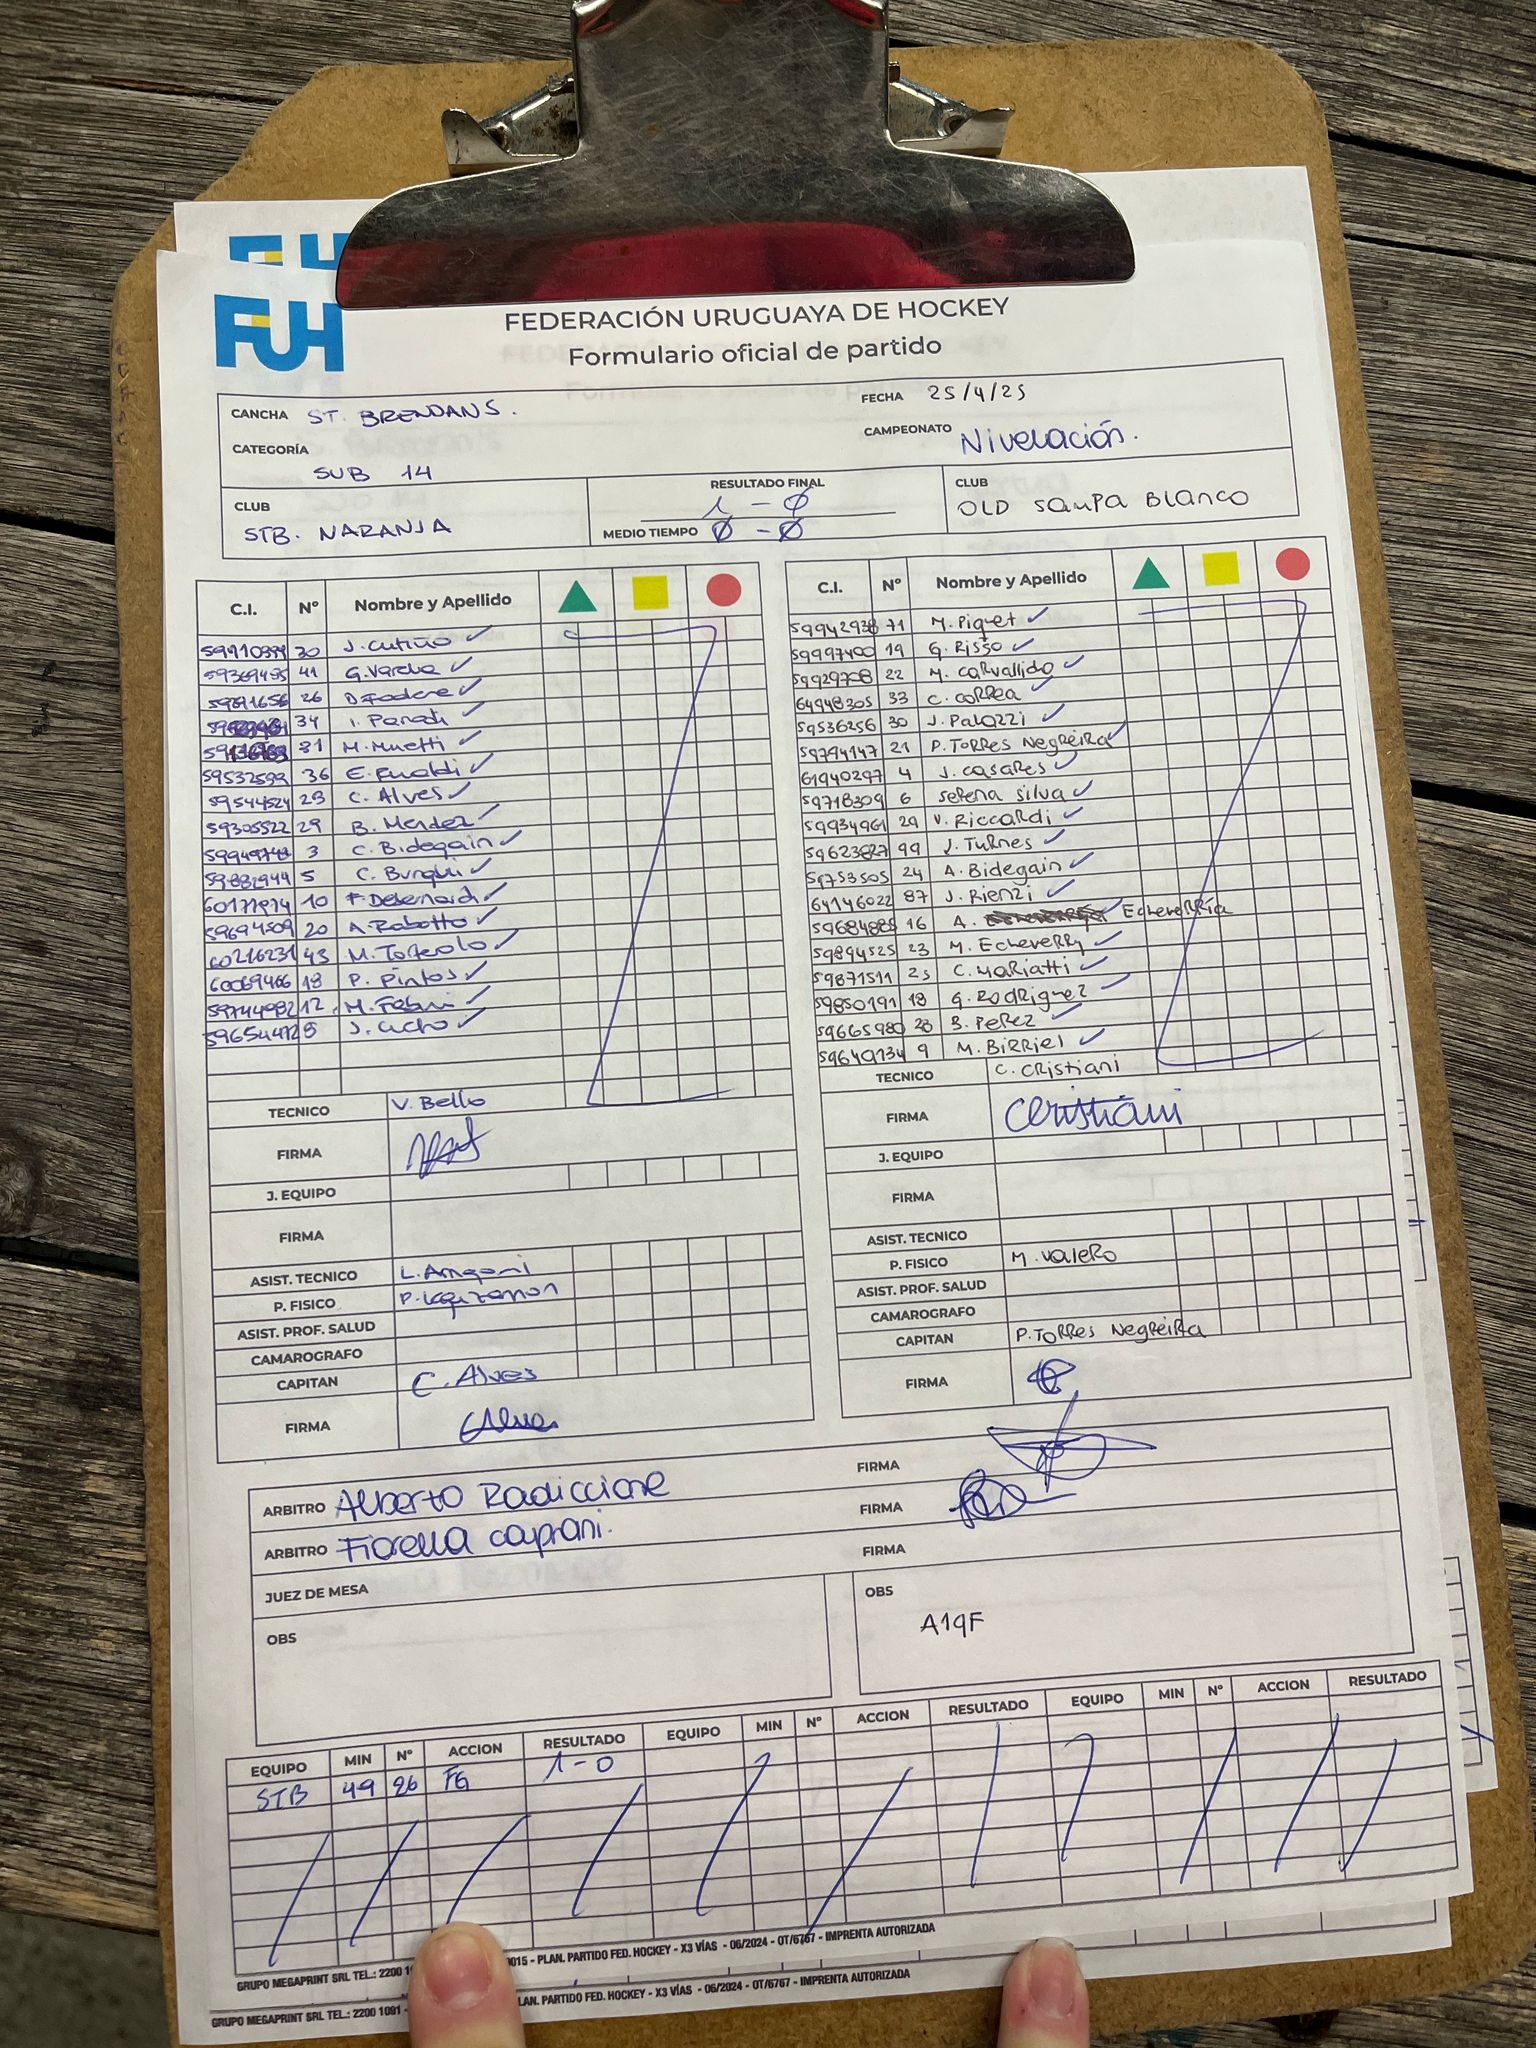 FUH
FEDERACIÓN URUGUAYA DE HOCKEY
Formulario oficial de partido
CANCHA ST. BRENDANS.
FECHA 25/4/25
CATEGORÍA SUB 14
CAMPEONATO Nivelación.
CLUB STB. NARANJA
RESULTADO FINAL 1 - 0
MEDIO TIEMPO 0 - 0
CLUB OLD SAMPA BLANCO
C.I. Nº Nombre y Apellido
30 J. Cutiño
41 G. Varela
26
34 I. Parodi
31 M. Minetti
59532599 36
59544524 23 C. Alves
59305522 29 B. Mendez
3 C. Bidegain
59832944 5 C. Burghi
10
59694509 20 A. Rabotto
60216231 43
60069466 18 P. Pintos
59744982 12
8
TECNICO V. Bello
FIRMA
J. EQUIPO
FIRMA
ASIST. TECNICO
P. FISICO
ASIST. PROF. SALUD
CAMAROGRAFO
CAPITAN C. Alves
FIRMA
C.I. Nº Nombre y Apellido
59942938 71 M. Piquet
59997400 19 G. Risso
59929708 22 M. Carvallido
64948305 33 C. Correa
59536256 30 J. Palozzi
59794147 21 P. Torres Negreira
61940297 4 J. Casares
59718309 6 Serena Silva
59934961 29 V. Riccardi
59623827 99 J. Turnes
59753505 24 A. Bidegain
64146022 87 J. Rienzi
59684885 16 A. Echeverría
59894525 23 M. Echeverry
59871511 25 C. Mariatti
59850191 18 G. Rodriguez
59665980 28 B. Perez
59640134 9 M. Birriel
TECNICO C. Cristiani
FIRMA Cristiani
J. EQUIPO
FIRMA
ASIST. TECNICO
P. FISICO M. Valero
ASIST. PROF. SALUD
CAMAROGRAFO
CAPITAN P. Torres Negreira
FIRMA
ARBITRO Alberto Radiccione FIRMA
ARBITRO Fiorella Caprani. FIRMA
JUEZ DE MESA FIRMA
OBS
OBS
A19F
EQUIPO MIN Nº ACCION RESULTADO EQUIPO MIN Nº ACCION RESULTADO EQUIPO MIN Nº ACCION RESULTADO
STB 49 26 FG 1-0
GRUPO MEGAPRINT SRL TEL.: 2200 1 0015 - PLAN. PARTIDO FED. HOCKEY - X3 VÍAS - 06/2024 - OT/6767 - IMPRENTA AUTORIZADA
GRUPO MEGAPRINT SRL TEL.: 2200 1091 - LAN. PARTIDO FED. HOCKEY - X3 VÍAS - 06/2024 - OT/6767 - IMPRENTA AUTORIZADA